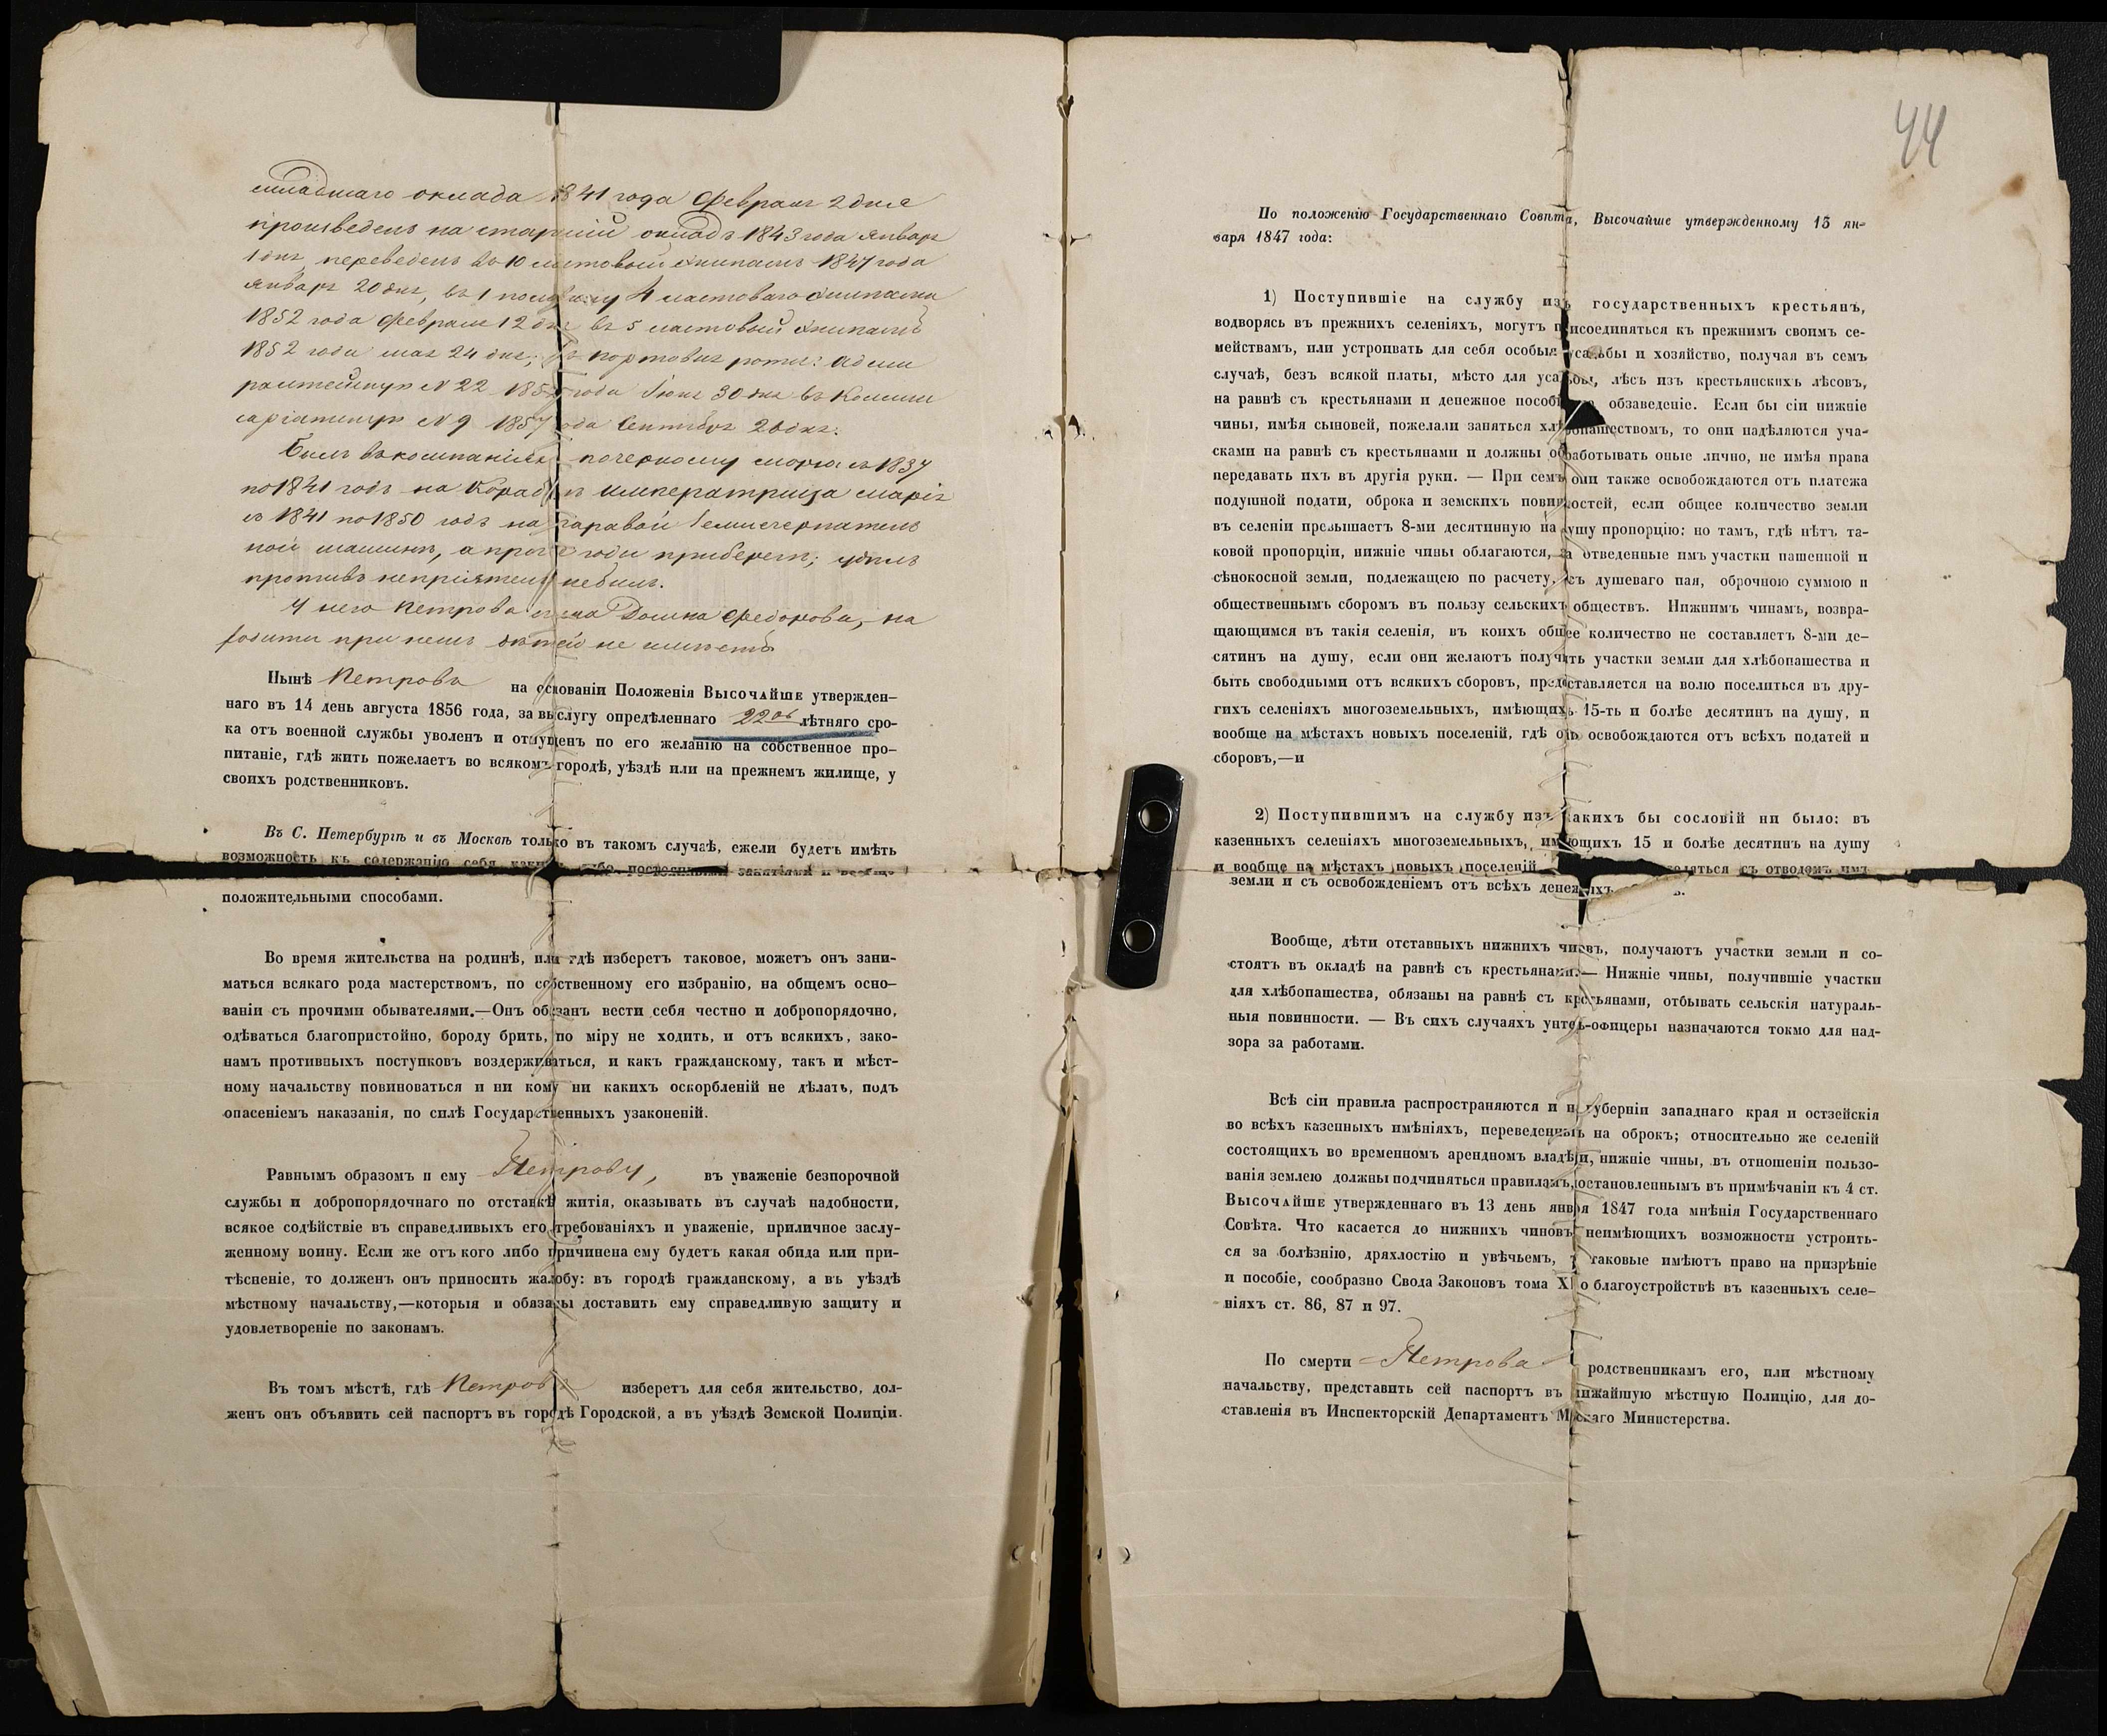 младшаго оклада 1841 года Февраля 2 дня
произведенъ на старшій окладъ 1843 года Января
1 дня, переведенъ въ 10 ластовый Экипажъ 1847 года
Января 20 дня, въ 1 4 ластоваго Экипажа
1852 года Февраля 12 дня въ 5 ластовый Экипажъ
1852 года мая 24 дня; портовыя роты: Адми
ралтейскую № 22 года Іюня 30 дня въ Комми
саріатскую № 9 1857 года Сентября 26 дня.
Былъ въ компаніяхъ по черному морю съ 1837
по 1841 годъ на Корабле Императрица Марія
съ 1841 по 1850 годъ на паравой Землечерпатель
ной машине, а прочіе годы при береге;
противъ непріятеля небылъ.
У него Петрова жена Домна Федорова, на
ходится при немъ детей не имеетъ
Нынѣ Петровъ на основаніи Положенія Высочайше утвержден-
наго въ 14 день августа 1856 года, за выслугу опредѣленнаго 22хъ лѣтняго сро-
ка отъ военной службы уволенъ и отпущенъ по его желанію на собственное про-
питаніе, гдѣ жить пожелаетъ во всякомъ городѣ, уѣздѣ или на прежнемъ жилище, у
своихъ родственниковъ.
Въ С. Петербургѣ и въ Москвѣ только въ такомъ случаѣ, ежели будетъ имѣть
возможность къ содержанію себя какими либо постоянными занятіями и вообще
положительными способами.
Во время жительства на родинѣ, или гдѣ изберетъ таковое, можетъ онъ зани-
маться всякаго рода мастерствомъ, по собственному его избранію, на общемъ осно-
ваніи съ прочими обывателями.—Онъ обязанъ вести себя честно и добропорядочно,
одѣваться благопристойно, бороду брить, по міру не ходить, и отъ всякихъ, зако-
намъ противныхъ поступковъ воздерживаться, и какъ гражданскому, такъ и мѣст-
ному начальству повиноваться и ни кому ни какихъ оскорбленій не дѣлать, подъ
опасеніемъ наказанія, по силѣ Государственныхъ узаконеній.
Равнымъ образомъ и ему Петрову, въ уваженіе безпорочной
службы и добропорядочнаго по отставкѣ житія, оказывать въ случаѣ надобности,
всякое содѣйствіе въ справедливыхъ его требованіяхъ и уваженіе, приличное заслу-
женному воину. Если же отъ кого либо причинена ему будетъ какая обида или при-
тѣсненіе, то долженъ онъ приносить жалобу: въ городѣ гражданскому, а въ уѣздѣ
мѣстному начальству,—которыя и обязаны доставить ему справедливую защиту и
удовлетвореніе по законамъ.
Въ томъ мѣстѣ, гдѣ Петровъ изберетъ для себя жительство, дол-
женъ онъ объявить сей паспортъ въ городѣ Городской, а въ уѣздѣ Земской Полиціи.
44
По положенію Государственнаго Совѣта, Высочайше утвержденному 13 ян-
варя 1847 года:
1) Поступившіе на службу изъ государственныхъ крестьянъ,
водворясь въ прежнихъ селеніяхъ, могутъ присоединяться къ прежнимъ своимъ се-
мействамъ, или устроивать для себя особыя усадьбы и хозяйство, получая въ семъ
случаѣ, безъ всякой платы, мѣсто для усадьбы, лѣсъ изъ крестьянскихъ лѣсовъ,
на равнѣ съ крестьянами и денежное пособіе на обзаведеніе. Если бы сіи нижніе
чины, имѣя сыновей, пожелали заняться хлѣбопашествомъ, то они надѣляются уча-
сками на равнѣ съ крестьянами и должны обработывать оные лично, не имѣя права
передавать ихъ въ другія руки. — При семъ они также освобождаются отъ платежа
подушной подати, оброка и земскихъ повинностей, если общее количество земли
въ селеніи превышаетъ 8-ми десятинную на душу пропорцію: но тамъ, гдѣ нѣтъ та-
ковой пропорціи, нижніе чины облагаются, за отведенные имъ участки пашенной и
сѣнокосной земли, подлежащею по расчету, съ душеваго пая, оброчною суммою и
общественнымъ сборомъ въ пользу сельскихъ обществъ. Нижнимъ чинамъ, возвра-
щающимся въ такія селенія, въ коихъ общее количество не составляетъ 8-ми де-
сятинъ на душу, если они желаютъ получить участки земли для хлѣбопашества и
быть свободными отъ всякихъ сборовъ, предоставляется на волю поселиться въ дру-
гихъ селеніяхъ многоземельныхъ, имѣющихъ 15-ть и болѣе десятинъ на душу, и
вообще на мѣстахъ новыхъ поселеній, гдѣ онъ освобождаются отъ всѣхъ податей и
сборовъ,—и
2) Поступившимъ на службу изъ какихъ бы сословій ни было: въ
казенныхъ селеніяхъ многоземельныхъ, имѣющихъ 15 и болѣе десятинъ на душу
и вообще на мѣстахъ новыхъ поселеній съ отводомъ имъ
земли и съ освобожденіемъ отъ всѣхъ денежныхъ
Вообще, дѣти отставныхъ нижнихъ чиновъ, получаютъ участки земли и со-
стоятъ въ окладѣ на равнѣ съ крестьянами.— Нижніе чины, получившіе участки
для хлѣбопашества, обязаны на равнѣ съ крестьянами, отбывать сельскія натураль-
ныя повинности. — Въ сихъ случаяхъ унтеръ-офицеры назначаются токмо для над-
зора за работами.
Всѣ сіи правила распространяются и на губерніи западнаго края и остзейскія
во всѣхъ казенныхъ имѣніяхъ, переведенныхъ на оброкъ; относительно же селеній
состоящихъ во временномъ арендномъ владѣніи, нижніе чины, въ отношеніи пользо-
ванія землею должны подчиняться правиламъ, постановленнымъ въ примѣчаніи къ 4 ст.
Высочайше утвержденнаго въ 13 день января 1847 года мнѣнія Государственнаго
Совѣта. Что касается до нижнихъ чиновъ неимѣющихъ возможности устроить-
ся за болѣзнію, дряхлостію и увѣчьемъ, то таковые имѣютъ право на призрѣніе
и пособіе, сообразно Свода Законовъ тома о благоустройствѣ въ казенныхъ селе-
ніяхъ ст. 86, 87 и 97.
По смерти Петрова родственникамъ его, или мѣстному
начальству, представить сей паспортъ въ ближайшую мѣстную Полицію, для до-
ставленія въ Инспекторскій Департаментъ Морскаго Министерства.